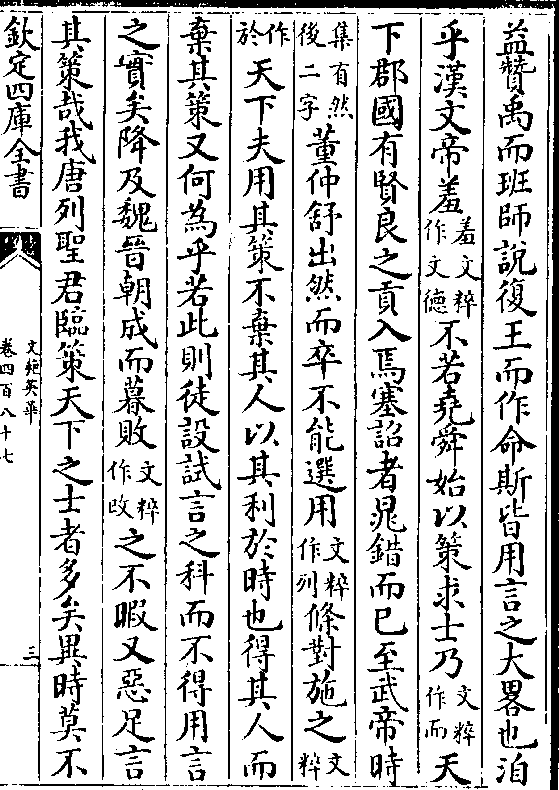 益贊禹而班師說復王而作命斯皆用言之大畧也洎
乎漢文帝羞羞文粹作文德不若堯舜始以策求士乃文粹作而天
下郡國有賢良之貢入焉塞詔者晁錯而已至武帝時
集有然後二字董仲舒出然而卒不能選用文粹作列條對施之文粹
作於天下夫用其策不棄其人以其利於時也得其人而
棄其策又何為乎若此則徒設試言之科而不得用言
之實矣降及魏晉朝成而暮敗文粹作改之不暇又惡足言
其策哉我唐列聖君臨策天下之士者多矣異時莫不
欽定四庫全書
文苑英華
卷四百八十七
三